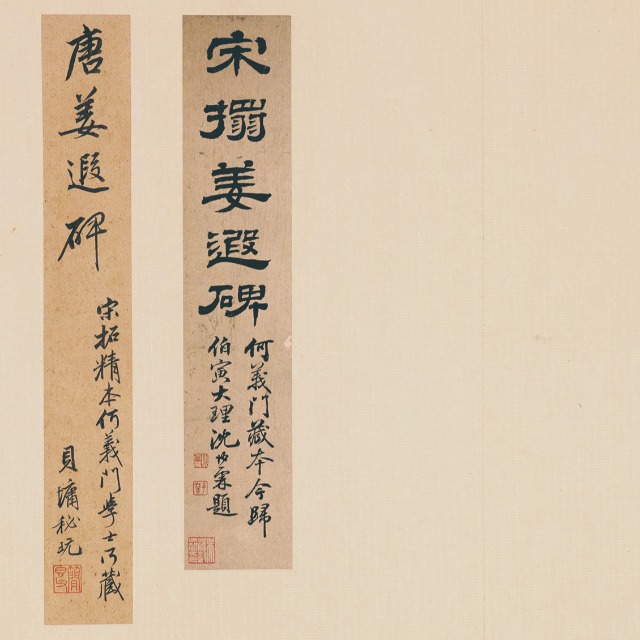 宋搨姜遐碑
何義門藏本今歸
伯寅大理沈樹鏞題
唐姜遐碑
宋拓精本何義門學士所藏
貝墉秘玩